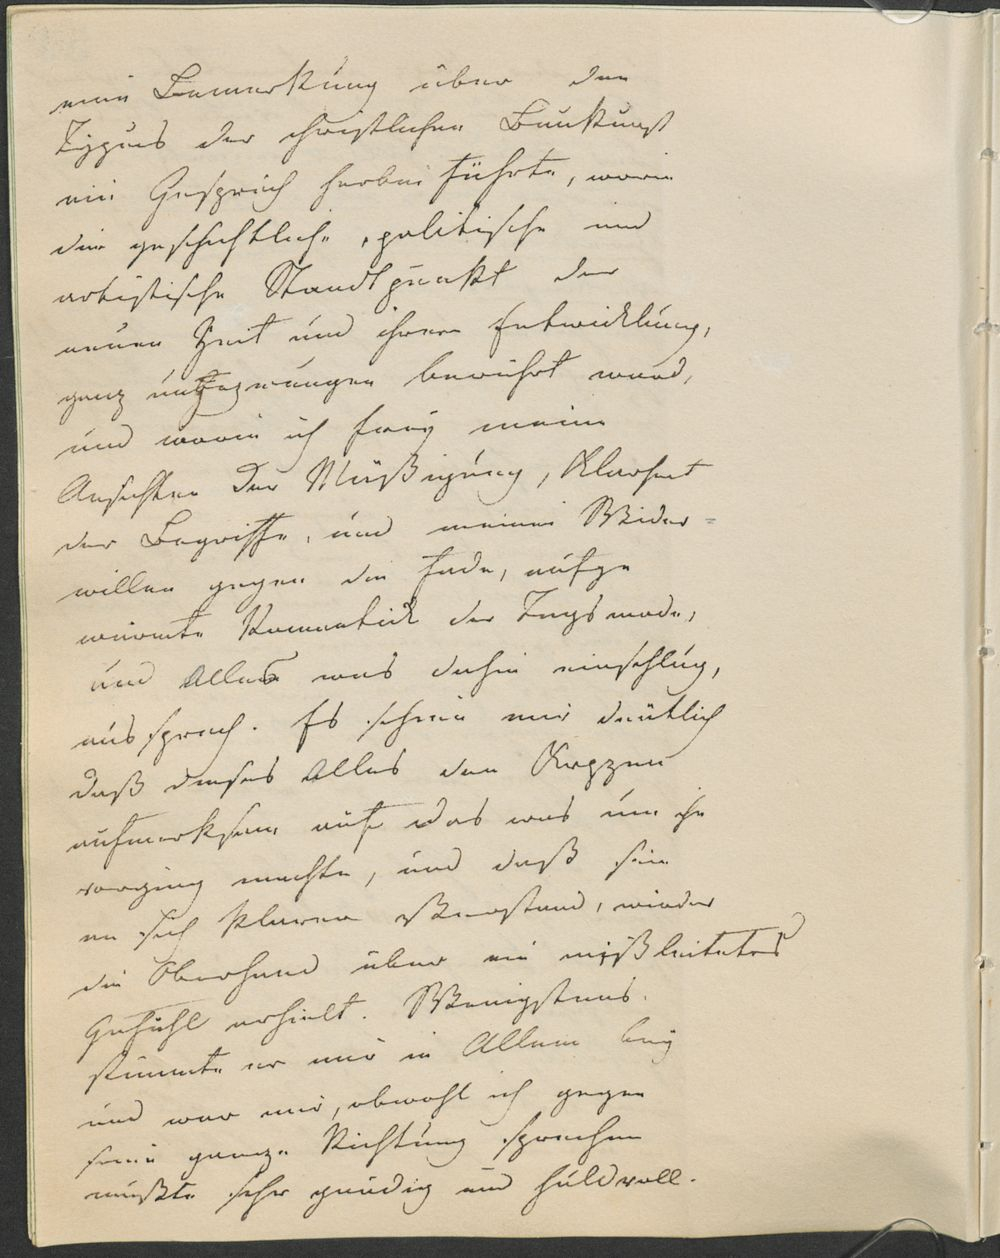 eine Bemerkung über den
Typus der christlichen Baukunst
ein Gespräch herbei führte, worin
die geschichtliche, politische und
artistische Standtpunkt der
neuen Zeit und ihrere Entwicklung,
ganz ungezwungen berührt ward,
und worin ich frey meine
Ansichten der Mäßigung, Klarheit
der Begriffe, und meinen Wider-
willen gegen die fade, aufge
wärmte Romantick der Tagsmode,
und Alles was dahin einschlug,
aussprach. Es schien mir deutlich
daß dieses Alles den
aufmerksam auf das was um ihn
vorging machte, und daß sein
an sich klarer Verstand, wieder
die Oberhand über ein mißleitetes
Gefühl erhielt. Wenigstens
stimmte er mir in Allem bey
und war mir, obwohl ich gegen
seine ganze Richtung sprechen
mußte sehr gnädig und huldvoll.